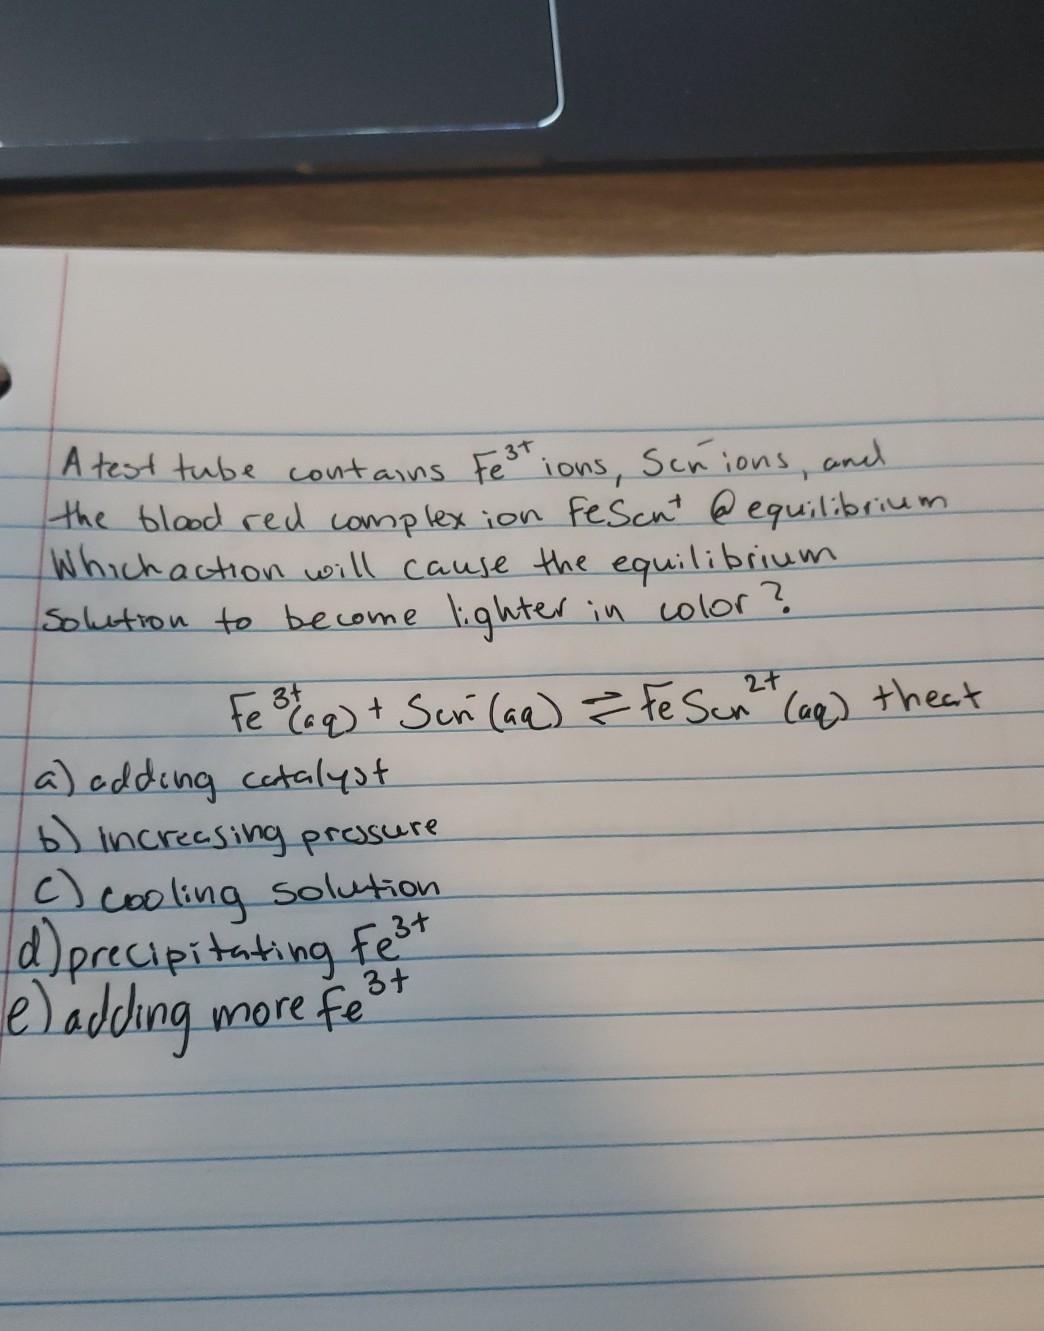 A test tube contains Fe³⁺ ions, Scn⁻ ions, and
the blood red complex ion FeScn⁺ @ equilibrium
Which action will cause the equilibrium
Solution to become lighter in color?
Fe³⁺(aq) + Scn⁻(aq) ⇌ FeScn²⁺(aq) + heat
a) adding catalyst
b) increasing pressure
c) cooling solution
d) precipitating Fe³⁺
e) adding more Fe³⁺